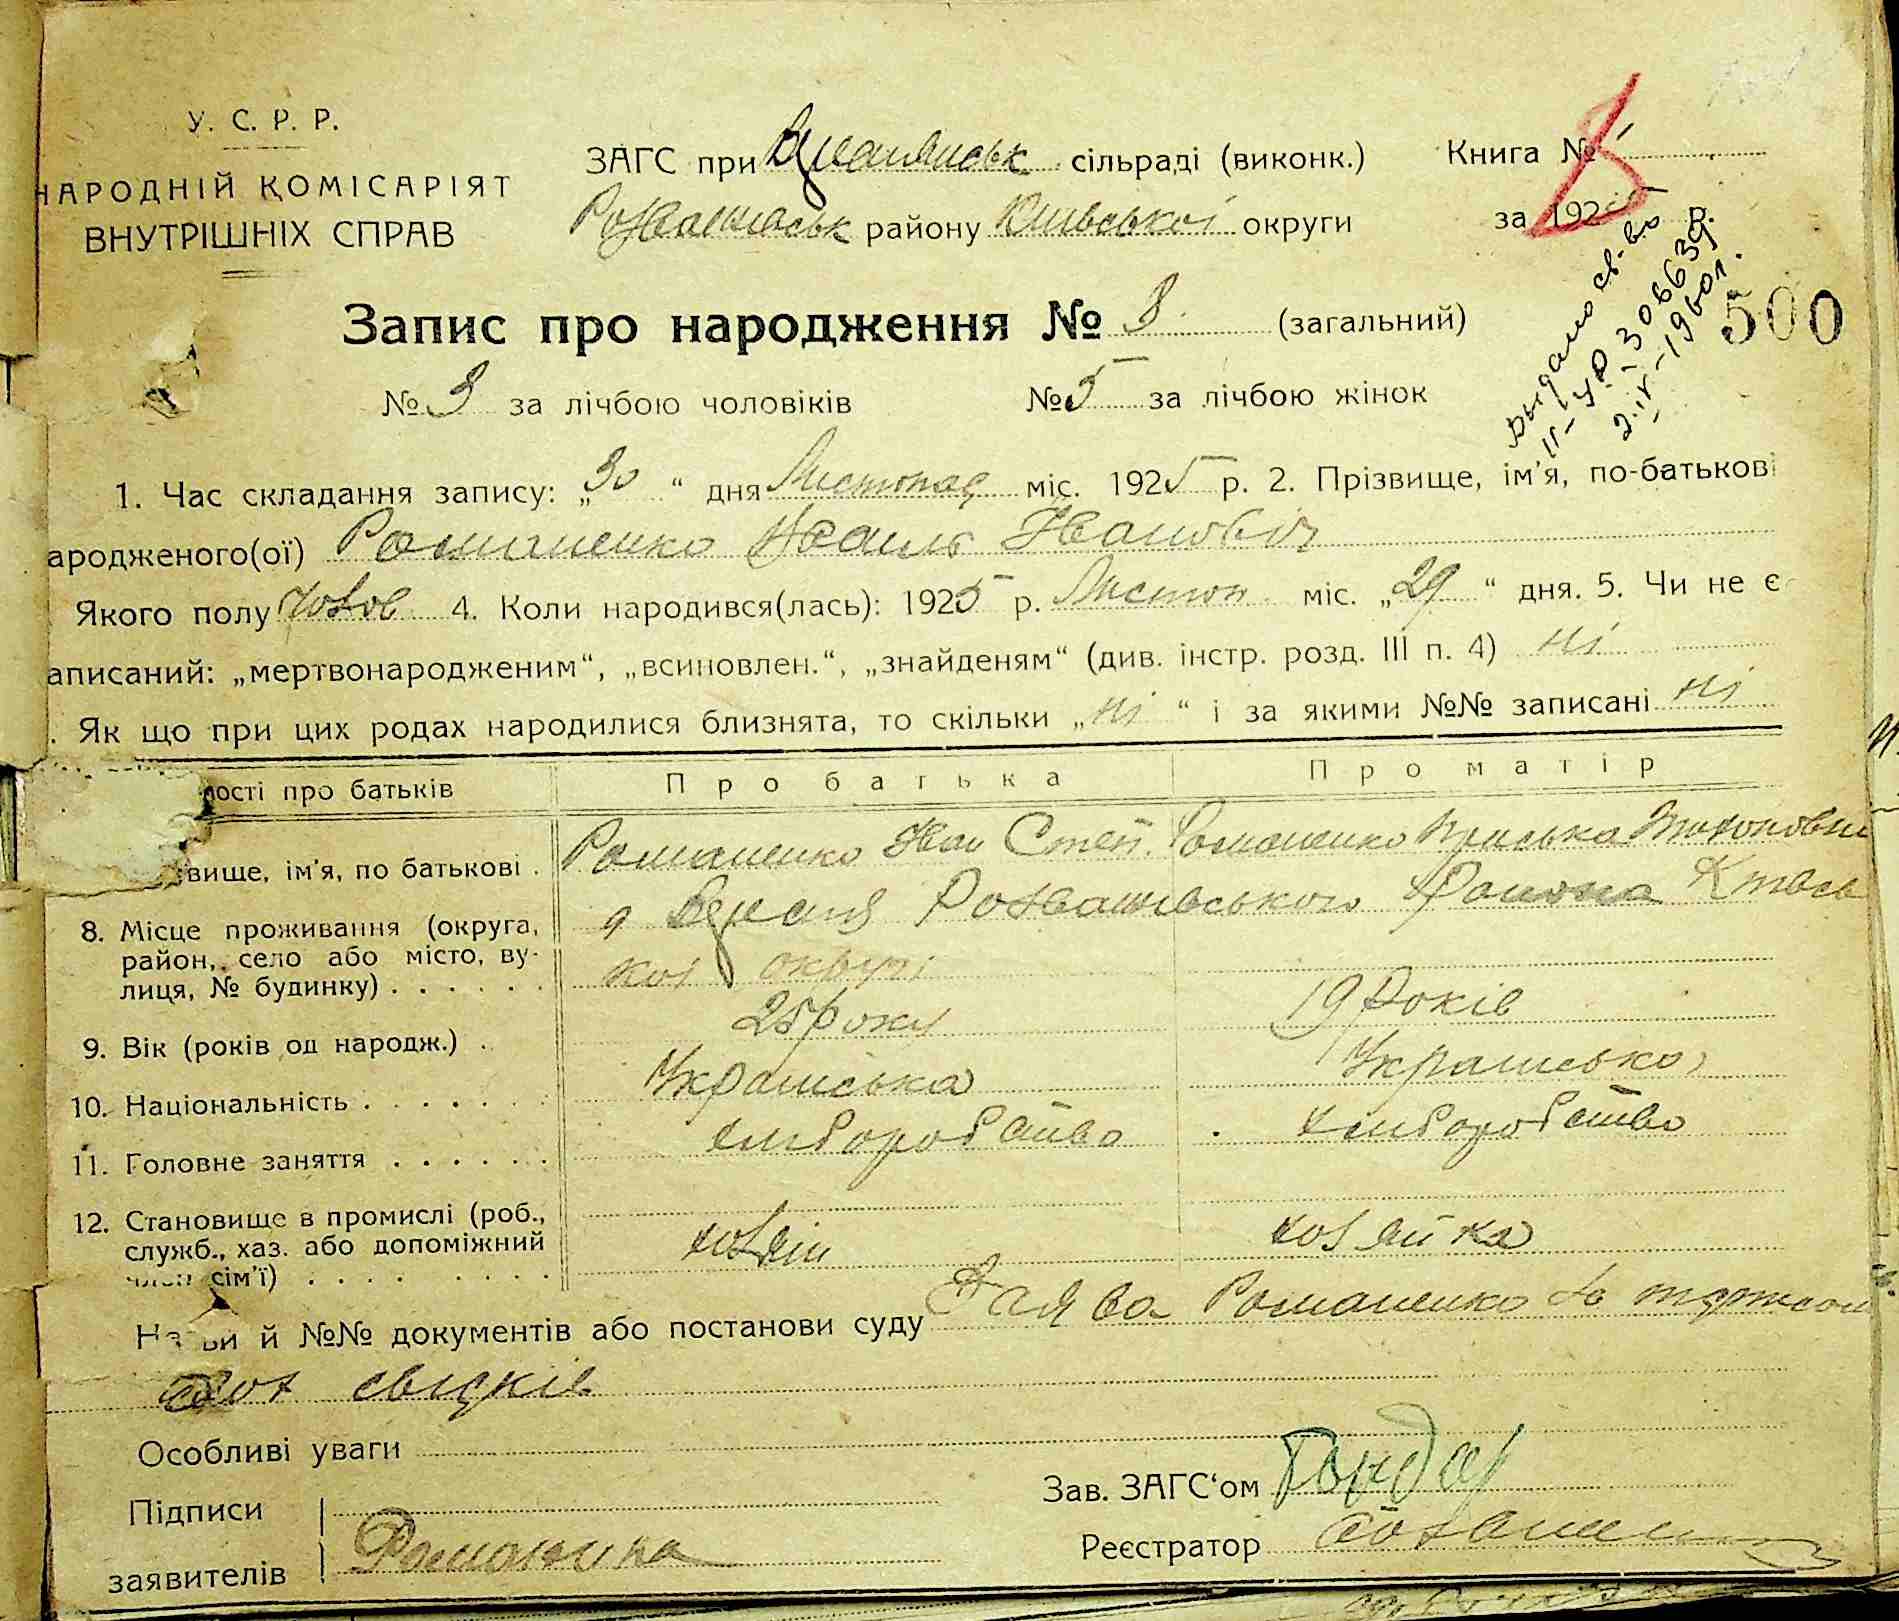 У. С. Р. Р.
НАРОДНІЙ КОМІСАРІЯТ
ВНУТРІШНІХ СПРАВ
ЗАГС при сільраді (виконк.)
Розважівськ району Київської округи
Книга №
за 192
500
Видано св-во
Запис про народження № 8 (загальний)
№ 3 за лічбою чоловіків № 5 за лічбою жінок
1. Час складання запису: „30 “ дня Листопад міс. 1925 р. 2. Прізвище, ім'я, по-батькові
ародженого(ої) Романенко Іванович
Якого полу 4. Коли народився(лась): 1925 р. Листоп міс. „29 “ дня. 5. Чи не є
аписаний: „мертвонародженим“, „всиновлен.“, „знайденям“ (див. інстр. розд. III п. 4) ні
. Як що при цих родах народилися близнята, то скільки „ні “ і за якими №№ записані ні
ості про батьків
Про батька
Про матір
вище, ім'я, по батькові .
Романенко Іван Степ.
Романенко
8. Місце проживання (округа,
район, село або місто, ву-
лиця, № будинку) . . . . . .
Розважівського Района Київсь
кої округи
9. Вік (років од народж.) .
25 року
19 Років
10. Національність . . . . . . .
Українська
Українська
11. Головне заняття . . . . . .
хліборобство
хліборобство
12. Становище в промислі (роб.,
служб., хаз. або допоміжний
член сім'ї) . . . . . . . . .
хозяїн
хозяйка
Назви й №№ документів або постанови суду Заява Романенко
свідків
Особливі уваги
Підписи
заявителів
Зав. ЗАГС'ом
Реєстратор